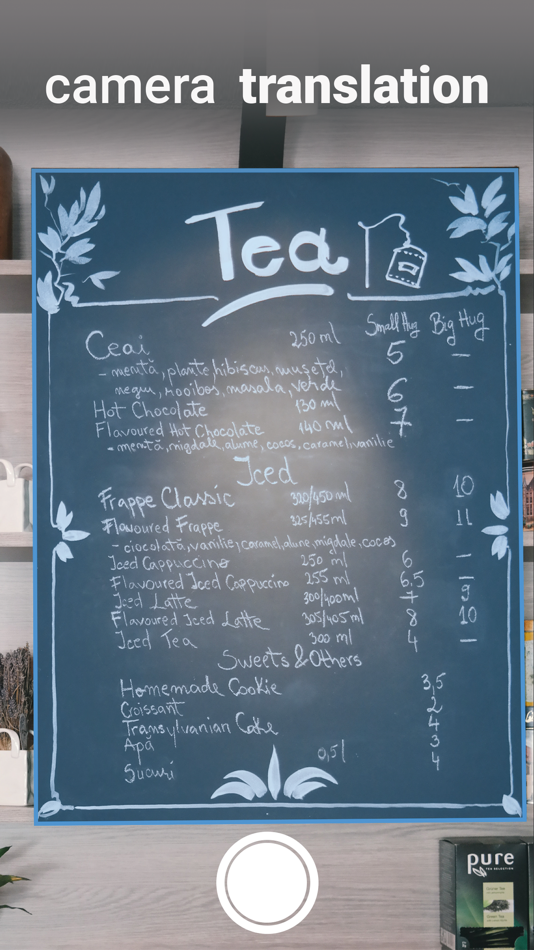 camera translation
Tea
Small Hug Big Hug
Ceai 250 ml 5 —
- mentă, plante, hibiscus, mușețel,
negru, rooibos, masala, verde
Hot Chocolate 130 ml 6 —
Flavoured Hot Chocolate 140 ml 7 —
- mentă, migdale, alune, cocos, caramel, vanilie
Iced
Frappe Classic 320/450 ml 8 10
Flavoured Frappe 325/455 ml 9 11
- ciocolată, vanilie, caramel, alune, migdale, cocos
Iced Cappuccino 250 ml 6 —
Flavoured Iced Cappuccino 255 ml 6,5 —
Iced Latte 300/400 ml 7 9
Flavoured Iced Latte 305/405 ml 8 10
Iced Tea 300 ml 4 —
Sweets & Others
Homemade Cookie 3,5
Croissant 2
Transylvanian Cake 4
Apă 3
Sucuri 0,5 l 4
pure
TEA SELECTION